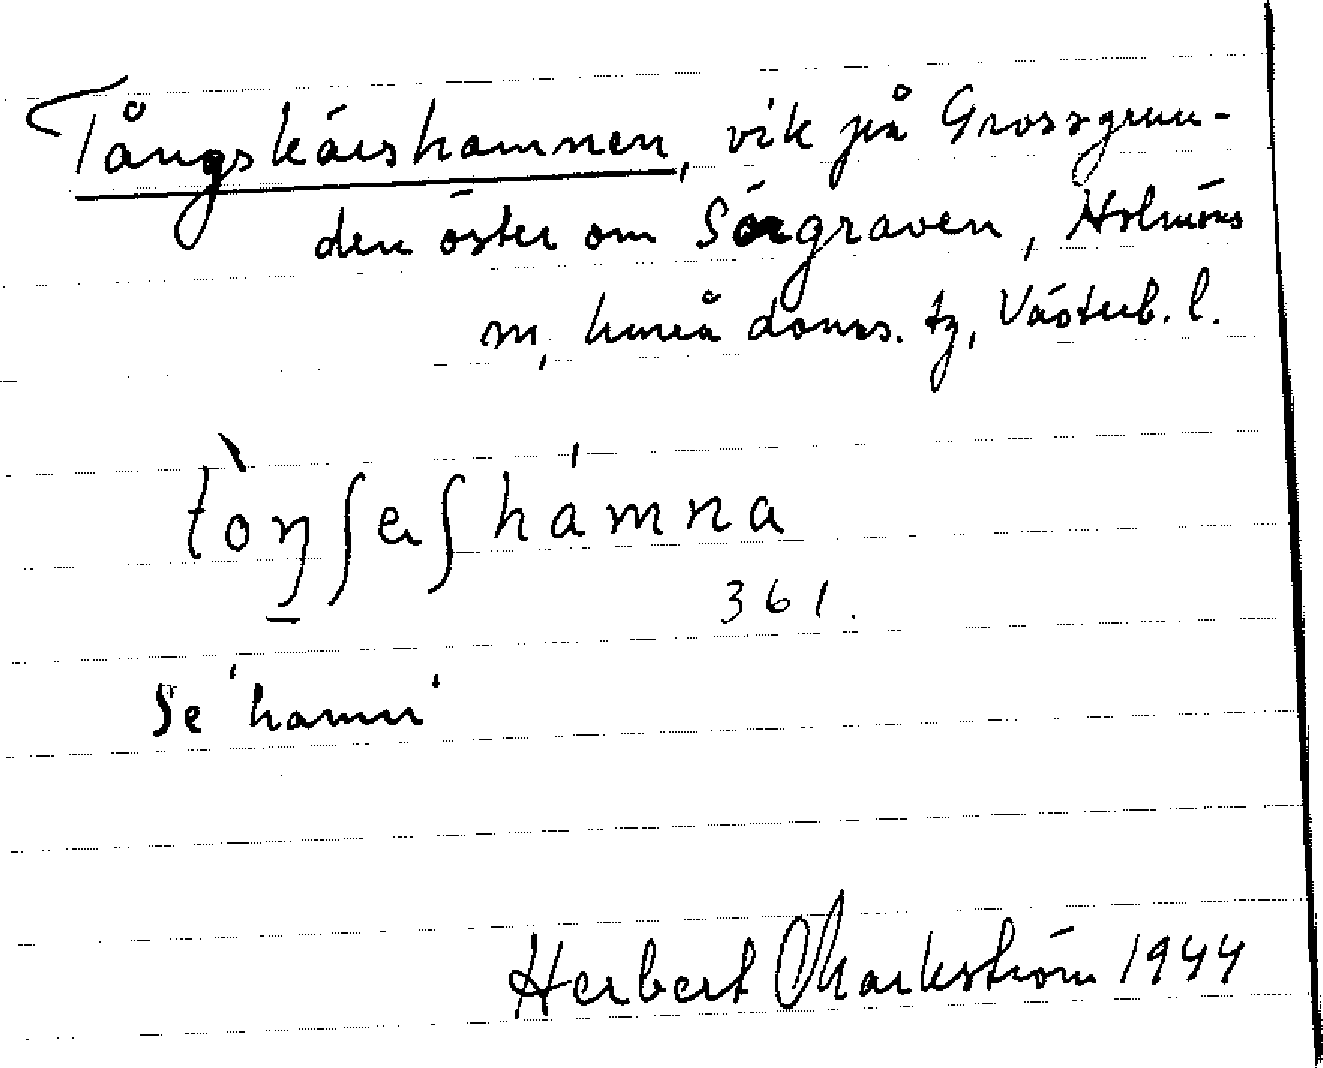 Tångskärshamnen, vik på Grossgrun-
den öster om Sörgraven, Holmöns
sn, Umeå doms. tg, Västerb. l.
tòŋʃeʃhámna
361.
Se 'hamn'
Herbert Markström 1944